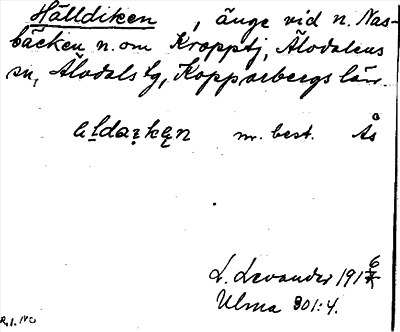 Hälldiken , änge vid n. Nas-
bäcken n. om Kropptj, Älvdalens
sn, Älvdals tg, Kopparbergs län.
m. best. Ås
L. Levander 1916
Ulma 301:4.